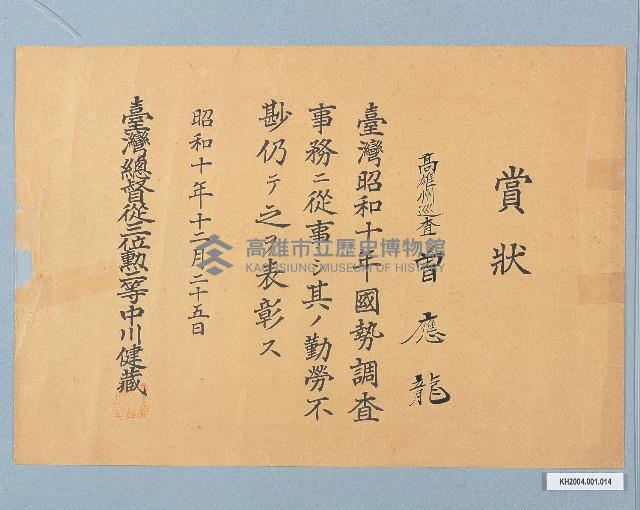 賞狀
高雄州巡查 曾應龍
臺灣昭和十年國勢調查
事務ニ從事シ其ノ勤勞不
尠仍テ之ヲ表彰ス
昭和十年十二月二十五日
臺灣總督從三位勲二等中川健藏
高雄市立歷史博物館
KAOHSIUNG MUSEUM OF HISTORY
KH2004.001.014